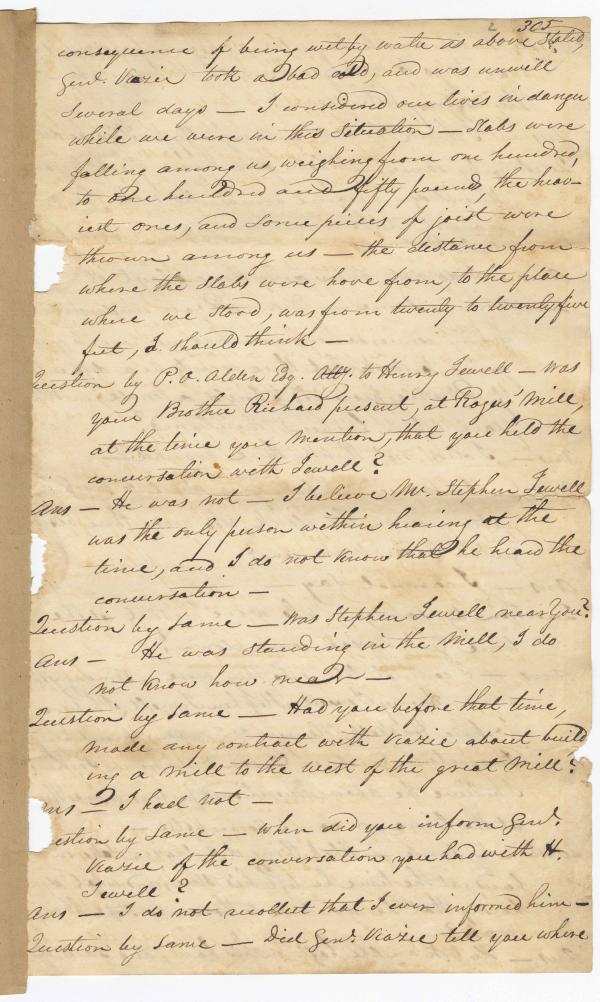 2 305
consequence of being wet by water as above stated,
Genl. Veazie took a bad cold, and was unwell
several days — I considered our lives in danger
while we were in this situation — Slabs were
falling among us, weighing from one hundred,
to one hundred and fifty pounds, the heav–
iest ones, and some pieces of joist were
thrown among us — the distance from
where the slabs were hove from, to the place
where we stood, was from twenty to twenty five
feet, I should think —
Question by P. O. Alden Esq. Atty. to Henry Jewell — was
your Brother Richard present, at Rogers' Mill,
at the time you mention, that you held the
conversation with Jewell?
Ans — He was not — I believe Mr. Stephen Jewell
was the only person within hearing at the
time, and I do not know that he heard the
conversation —
Question by same — was Stephen Jewell near you?
Ans — He was standing in the Mill, I do
not know how near —
Question by same — Had you before that time,
made any contract with Veazie about build
ing a Mill to the west of the great Mill?
Ans — I had not —
estion by same — when did you inform Genl.
Veazie of the conversation you had with H.
Jewell?
Ans — I do not recollect that I ever informed him —
Question by same — Did Genl. Veazie tell you where